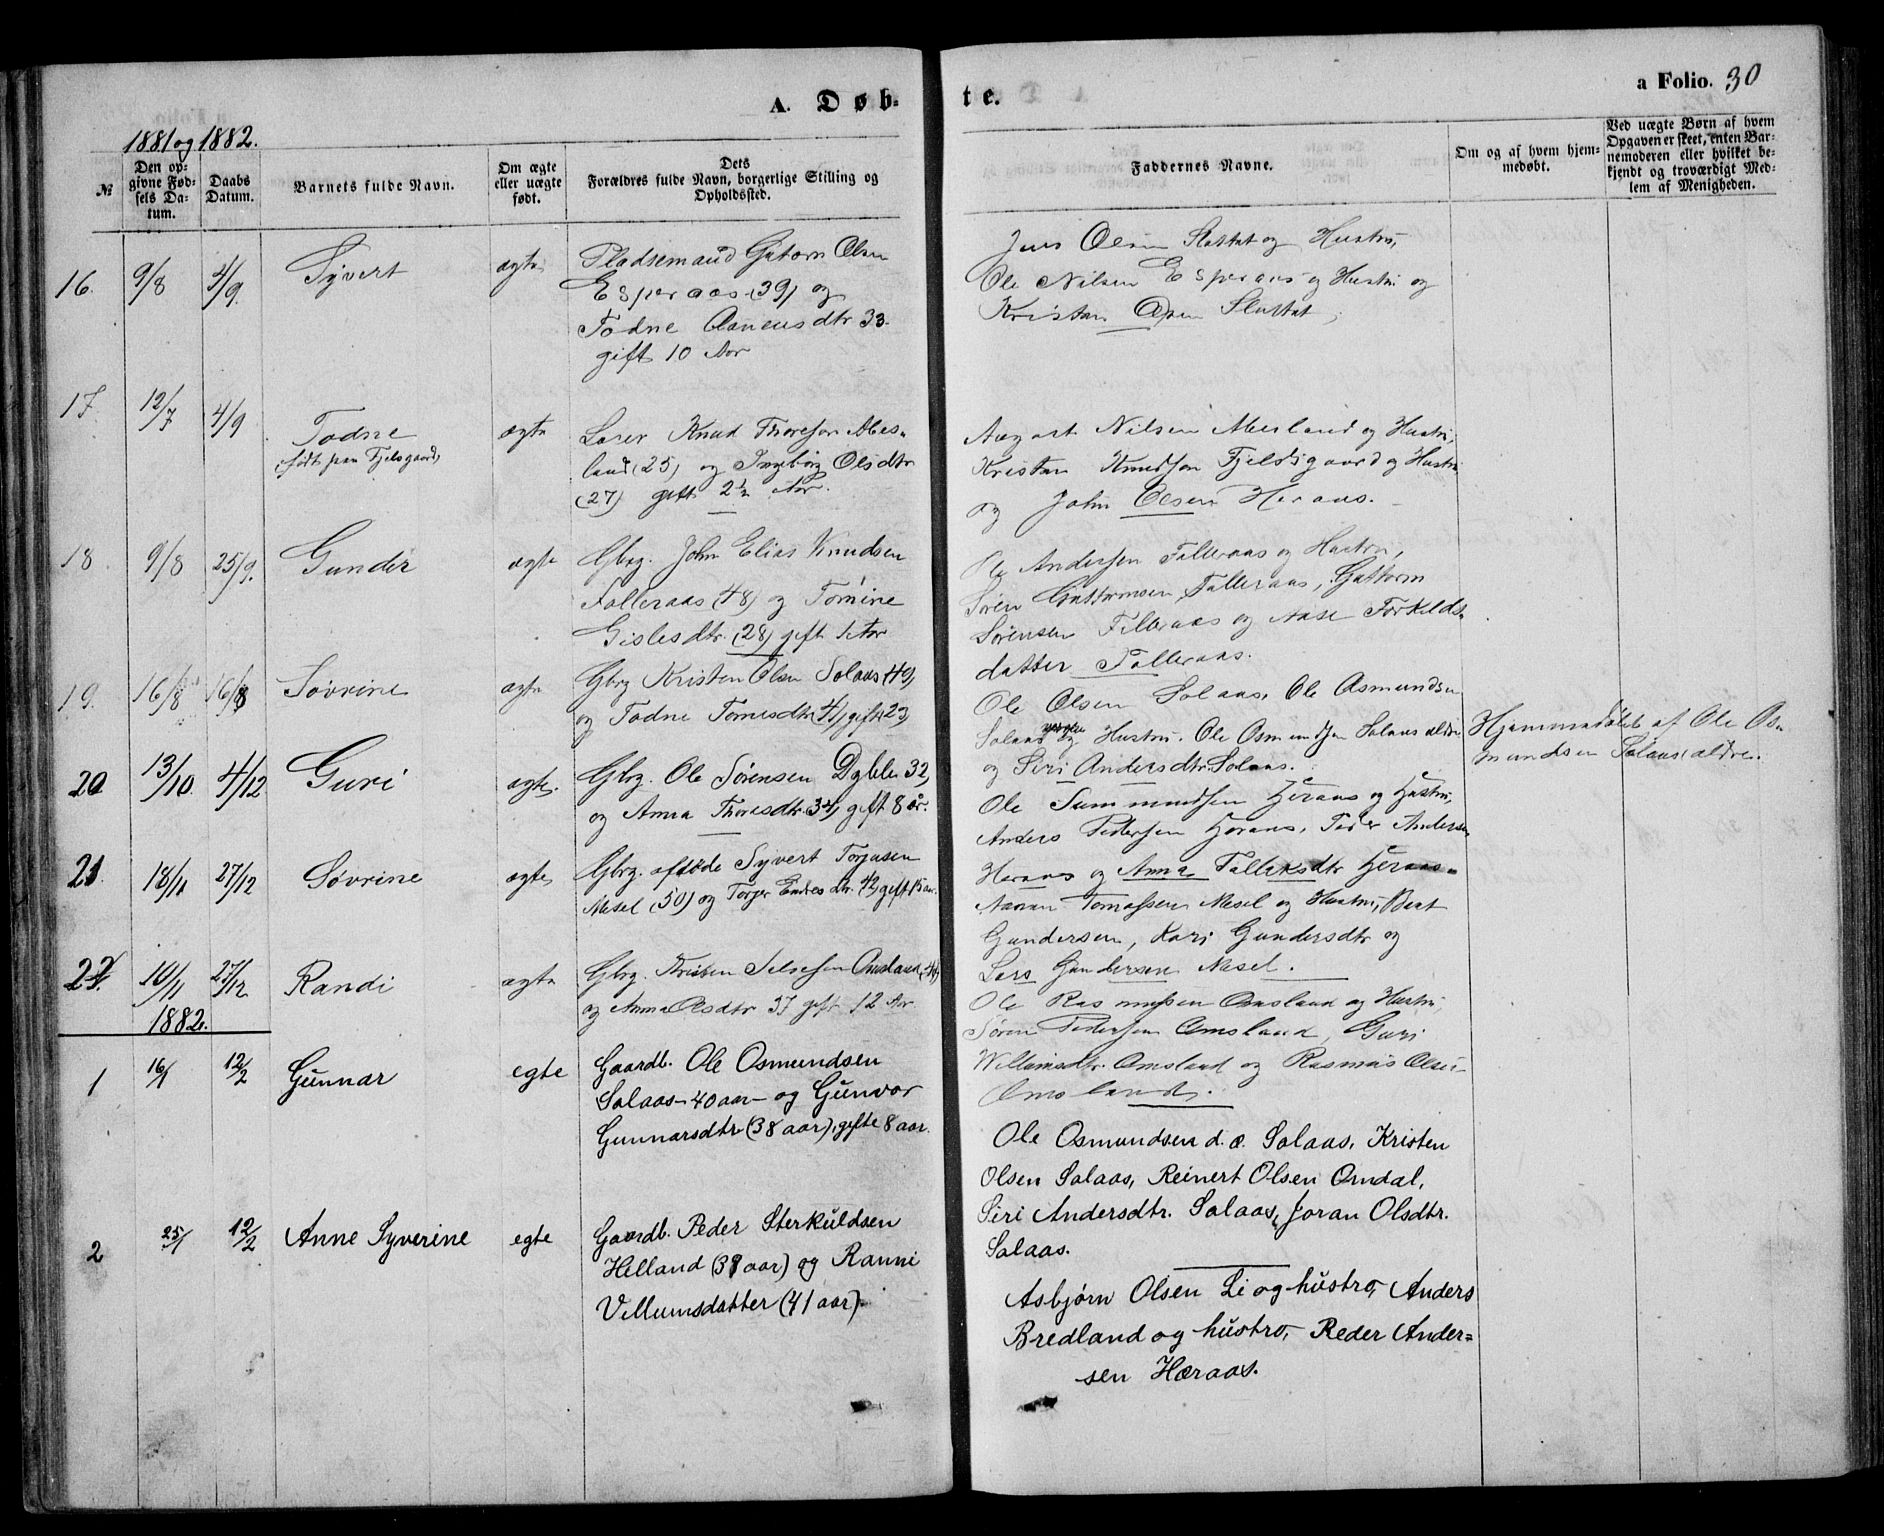 A. Døb-
1881 og 1882.
№
Den op-
givne Fød-
sels Da-
tum.
Daabs
Datum.
Barnets fulde Navn.
Om ægte
eller uægte
født.
Dets
Forældres fulde Navn, borgerlige Stilling og
Opholdssted.
16.
9/8
4/9.
Syvert
ægte
Pladsemand Gutorm Olsen
Esperaas (39) og
Todne Aanensdtr 33.
gift 10 Aar
17.
12/7
4/9
Todne
født paa Fjelsgaard
ægte
Lærer Knud Thoresen Abes-
land (25) og Ingeborg Olsdtr
(27) gift 2½ Aar.
18
9/8
25/9.
Gunder
ægte
Gbrg. John Elias Knudsen
Falleraas (48) og Tomine
Gislesdtr. (28) gift 1 Aar
19.
16/8
16/8
Søvrine
ægte
Gbrg Kristen Olsen Solaas 49)
og Todne Tomesdtr (41) gift 23)
20
13/10
4/12
Guri
ægte.
Gbrg. Ole Sørensen Dyble 32)
og Anna Thoresdtr. 34) gift 8 år.
21.
18/11
27/12
Søvrine
ægte
Gbrg. afdøde Syvert Torjusen
Mesel (50) og Torjer Endresdtr. 42) gift 15 aar.
22.
10/11
27/12
Randi
ægte
Gbrg. Kristen Omsland
og Anna Olsdtr 37 gift 12 Aar
1882.
1
16/1
12/2
Gunnar
egte
Gaardb. Ole Osmundsen
Salaas - 40 aar - og Gunvor
Gunnarsdtr (38 aar), gifte 8 aar.
2
25/1
12/2
Anne Syverine
egte
Gaardb. Peder Sterkuldsen
Helland (38 aar) og Ranni
Villumsdatter (41 aar).
te.
a Folio. 30
Faddernes Navne.
Om og af hvem hjem-
medøbt.
Ved uægte Børn af hvem
Opgaven er skeet, enten Bar-
nemoderen eller hvilket be-
kjendt og troværdigt Med-
lem af Menigheden.
Jens Olsen Slattat og Hustru,
Ole Nilsen Esperaas og Hustru og
Kristen Slattat,
August Nilsen Abesland og Hustru,
Kristen Knudsen Fjeldsgaard og Hustru
og John Olsen Heraas.
Ole Andersen Falleraas og Hustru,
Søren Guttormsen Falleraas, Guttorm
Sørensen Falleraas og Aase Torkilds-
datter Falleraas.
Ole Olsen Solaas, Ole Asmundsen
Solaas yngre og Hustru. Ole Osmundsen Solaas ældre
og Siri Andersdtr Solaas.
Hjemmedøbt af Ole Os-
mundsen Solaas ældre.
Ole Heraas og Hustru,
Anders Pedersen Heraas, Peder Andersen
Heraas og Anna Falleksdtr Heraas-
Aanen Tomassen Mesel og Hustru, Berit
Gundersen, Kari Gundersdtr og
Lars Gundersen Mesel.
Ole Rasmussen Omsland og Hustru,
Søren Pedersen Omsland, Guri
Willumsdtr. Omsland og Rasmus Olsen
Omsland.
Ole Osmundsen d. æ. Salaas, Kristen
Olsen Salaas, Reinert Olsen Omdal,
Siri Andersdtr. Salaas, Joran Olsdtr.
Salaas.
Asbjørn Olsen Li og hustro, Anders
Bredland og hustro, Peder Ander=
sen Hæraas.